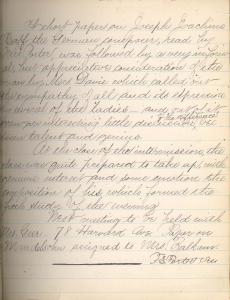 A short paper on Joseph Joachim
Raff the German composer, read by
was followed by a very
appreciative consideration of the
man by Mrs. Davis which called out
the sympathy of all and its expression
in several of the ladies and out of it
grew an interesting little discussion
the difference
talent and genius.
At the close of the intermission, the
class was quite prepared to take up with
genuine interest and some emotion the
composition of his which formed the
study of the evening
Next meeting to be held with
Mrs. 78 Harvard Ave. Paper on
Mendelssohn assigned to Mrs.